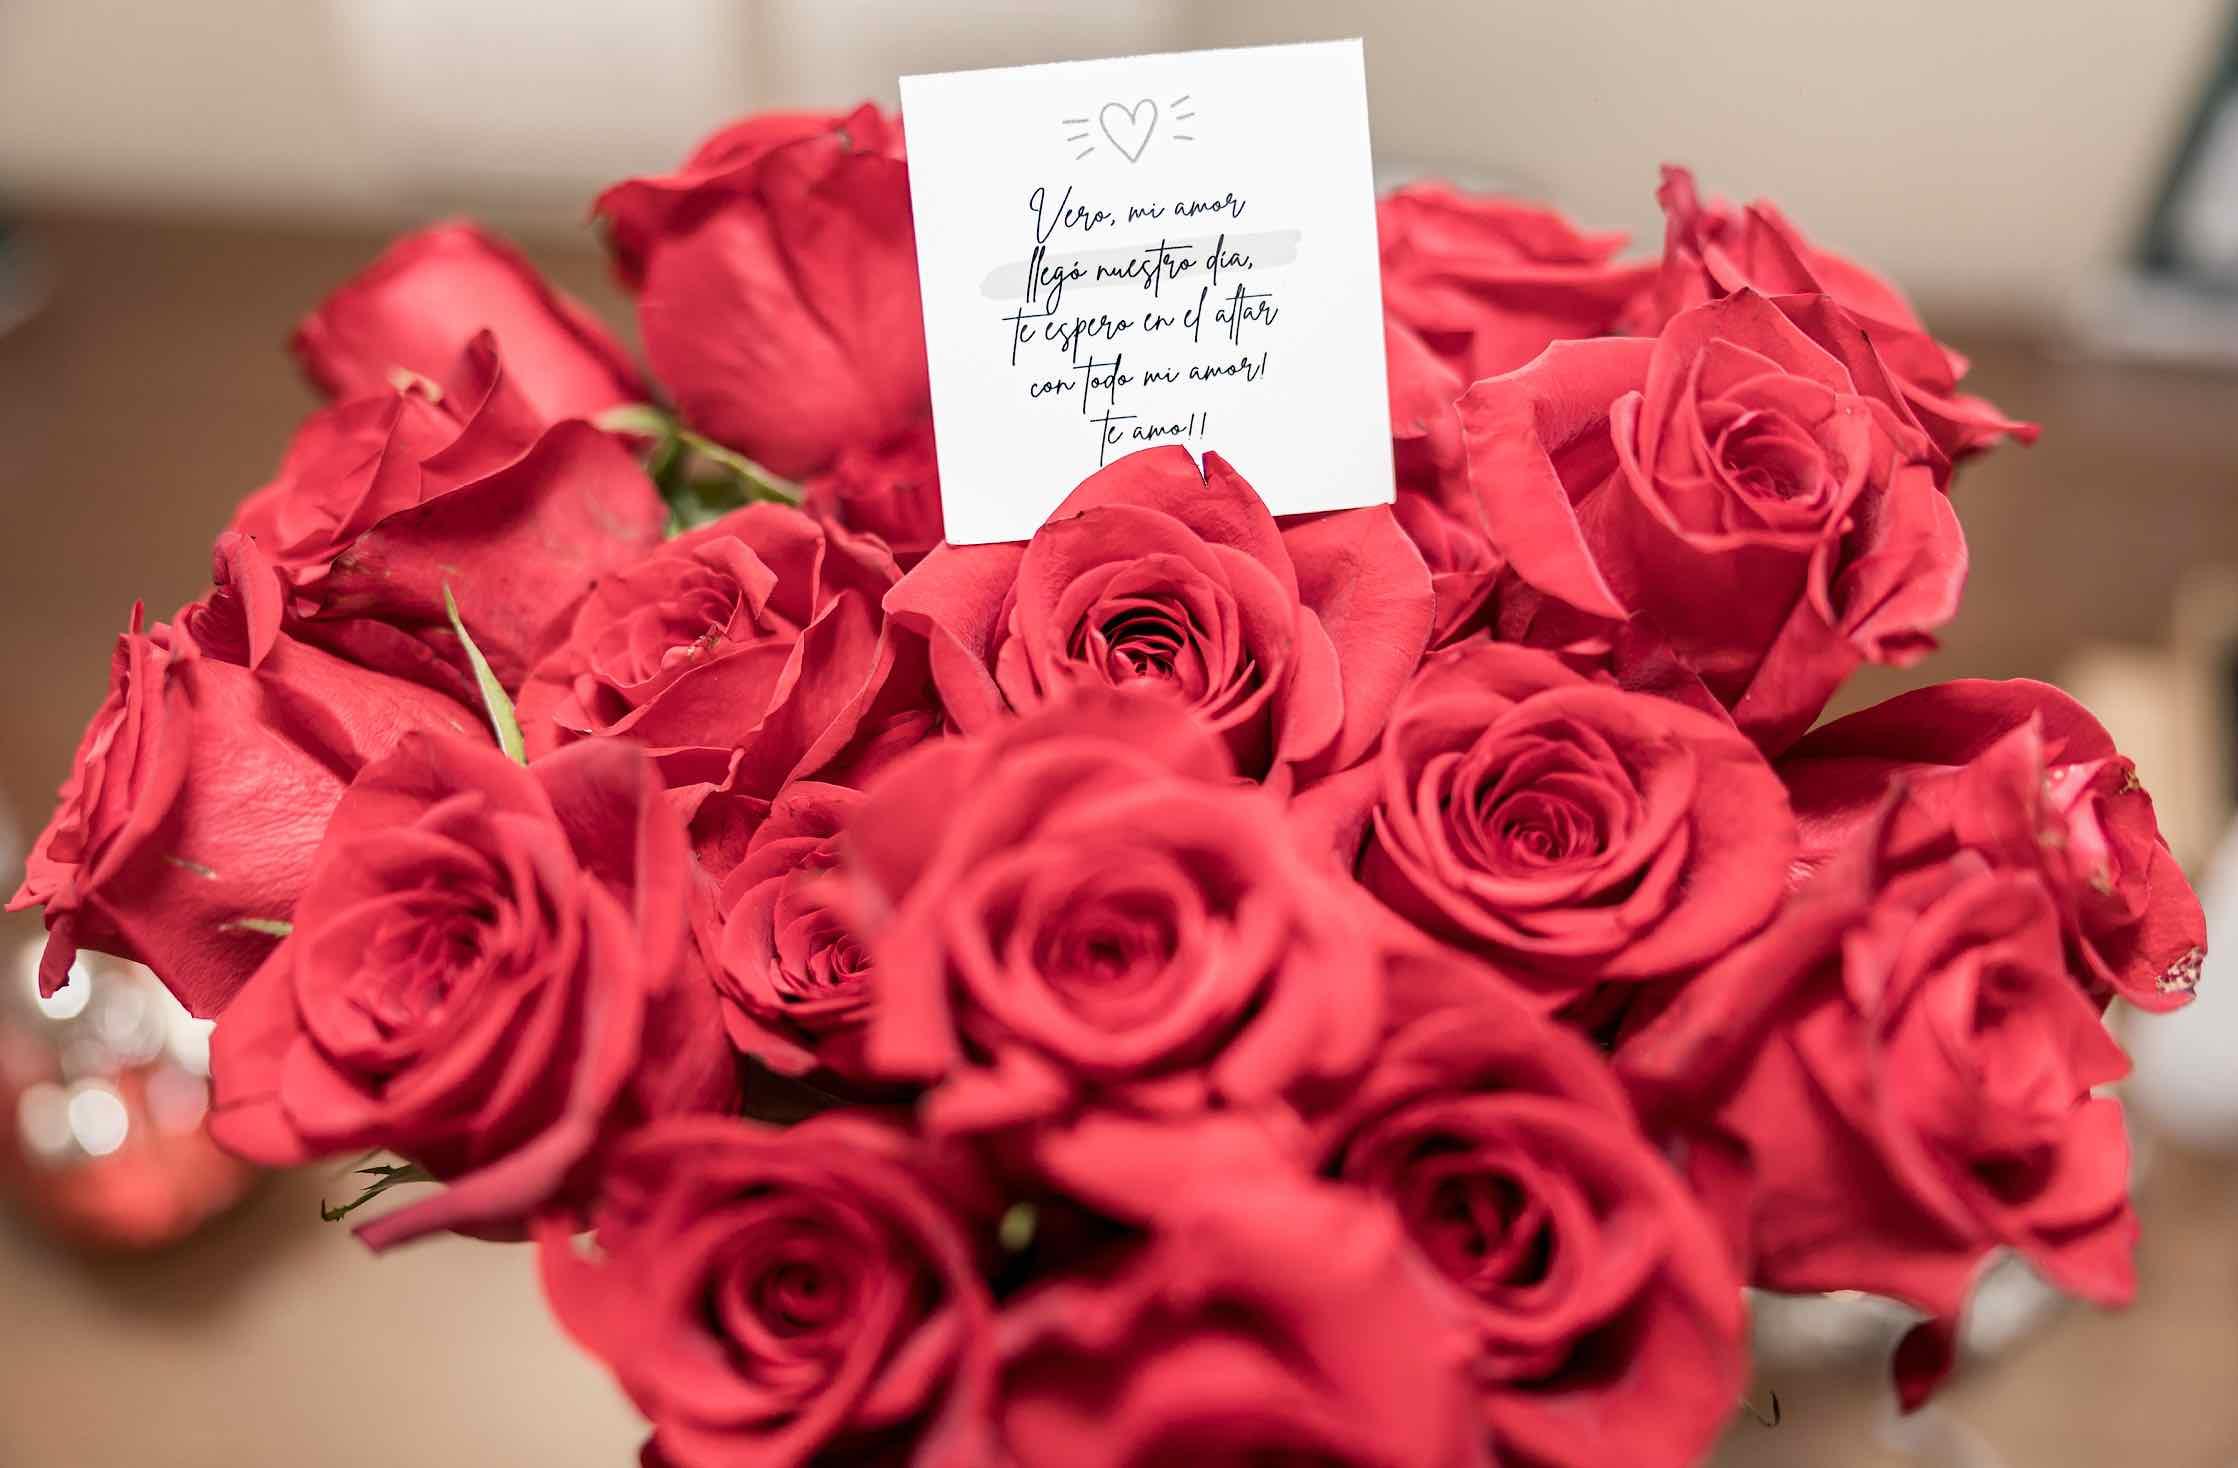 Vero, mi amor
llegó nuestro día,
te espero en el altar
con todo mi amor!
te amo!!